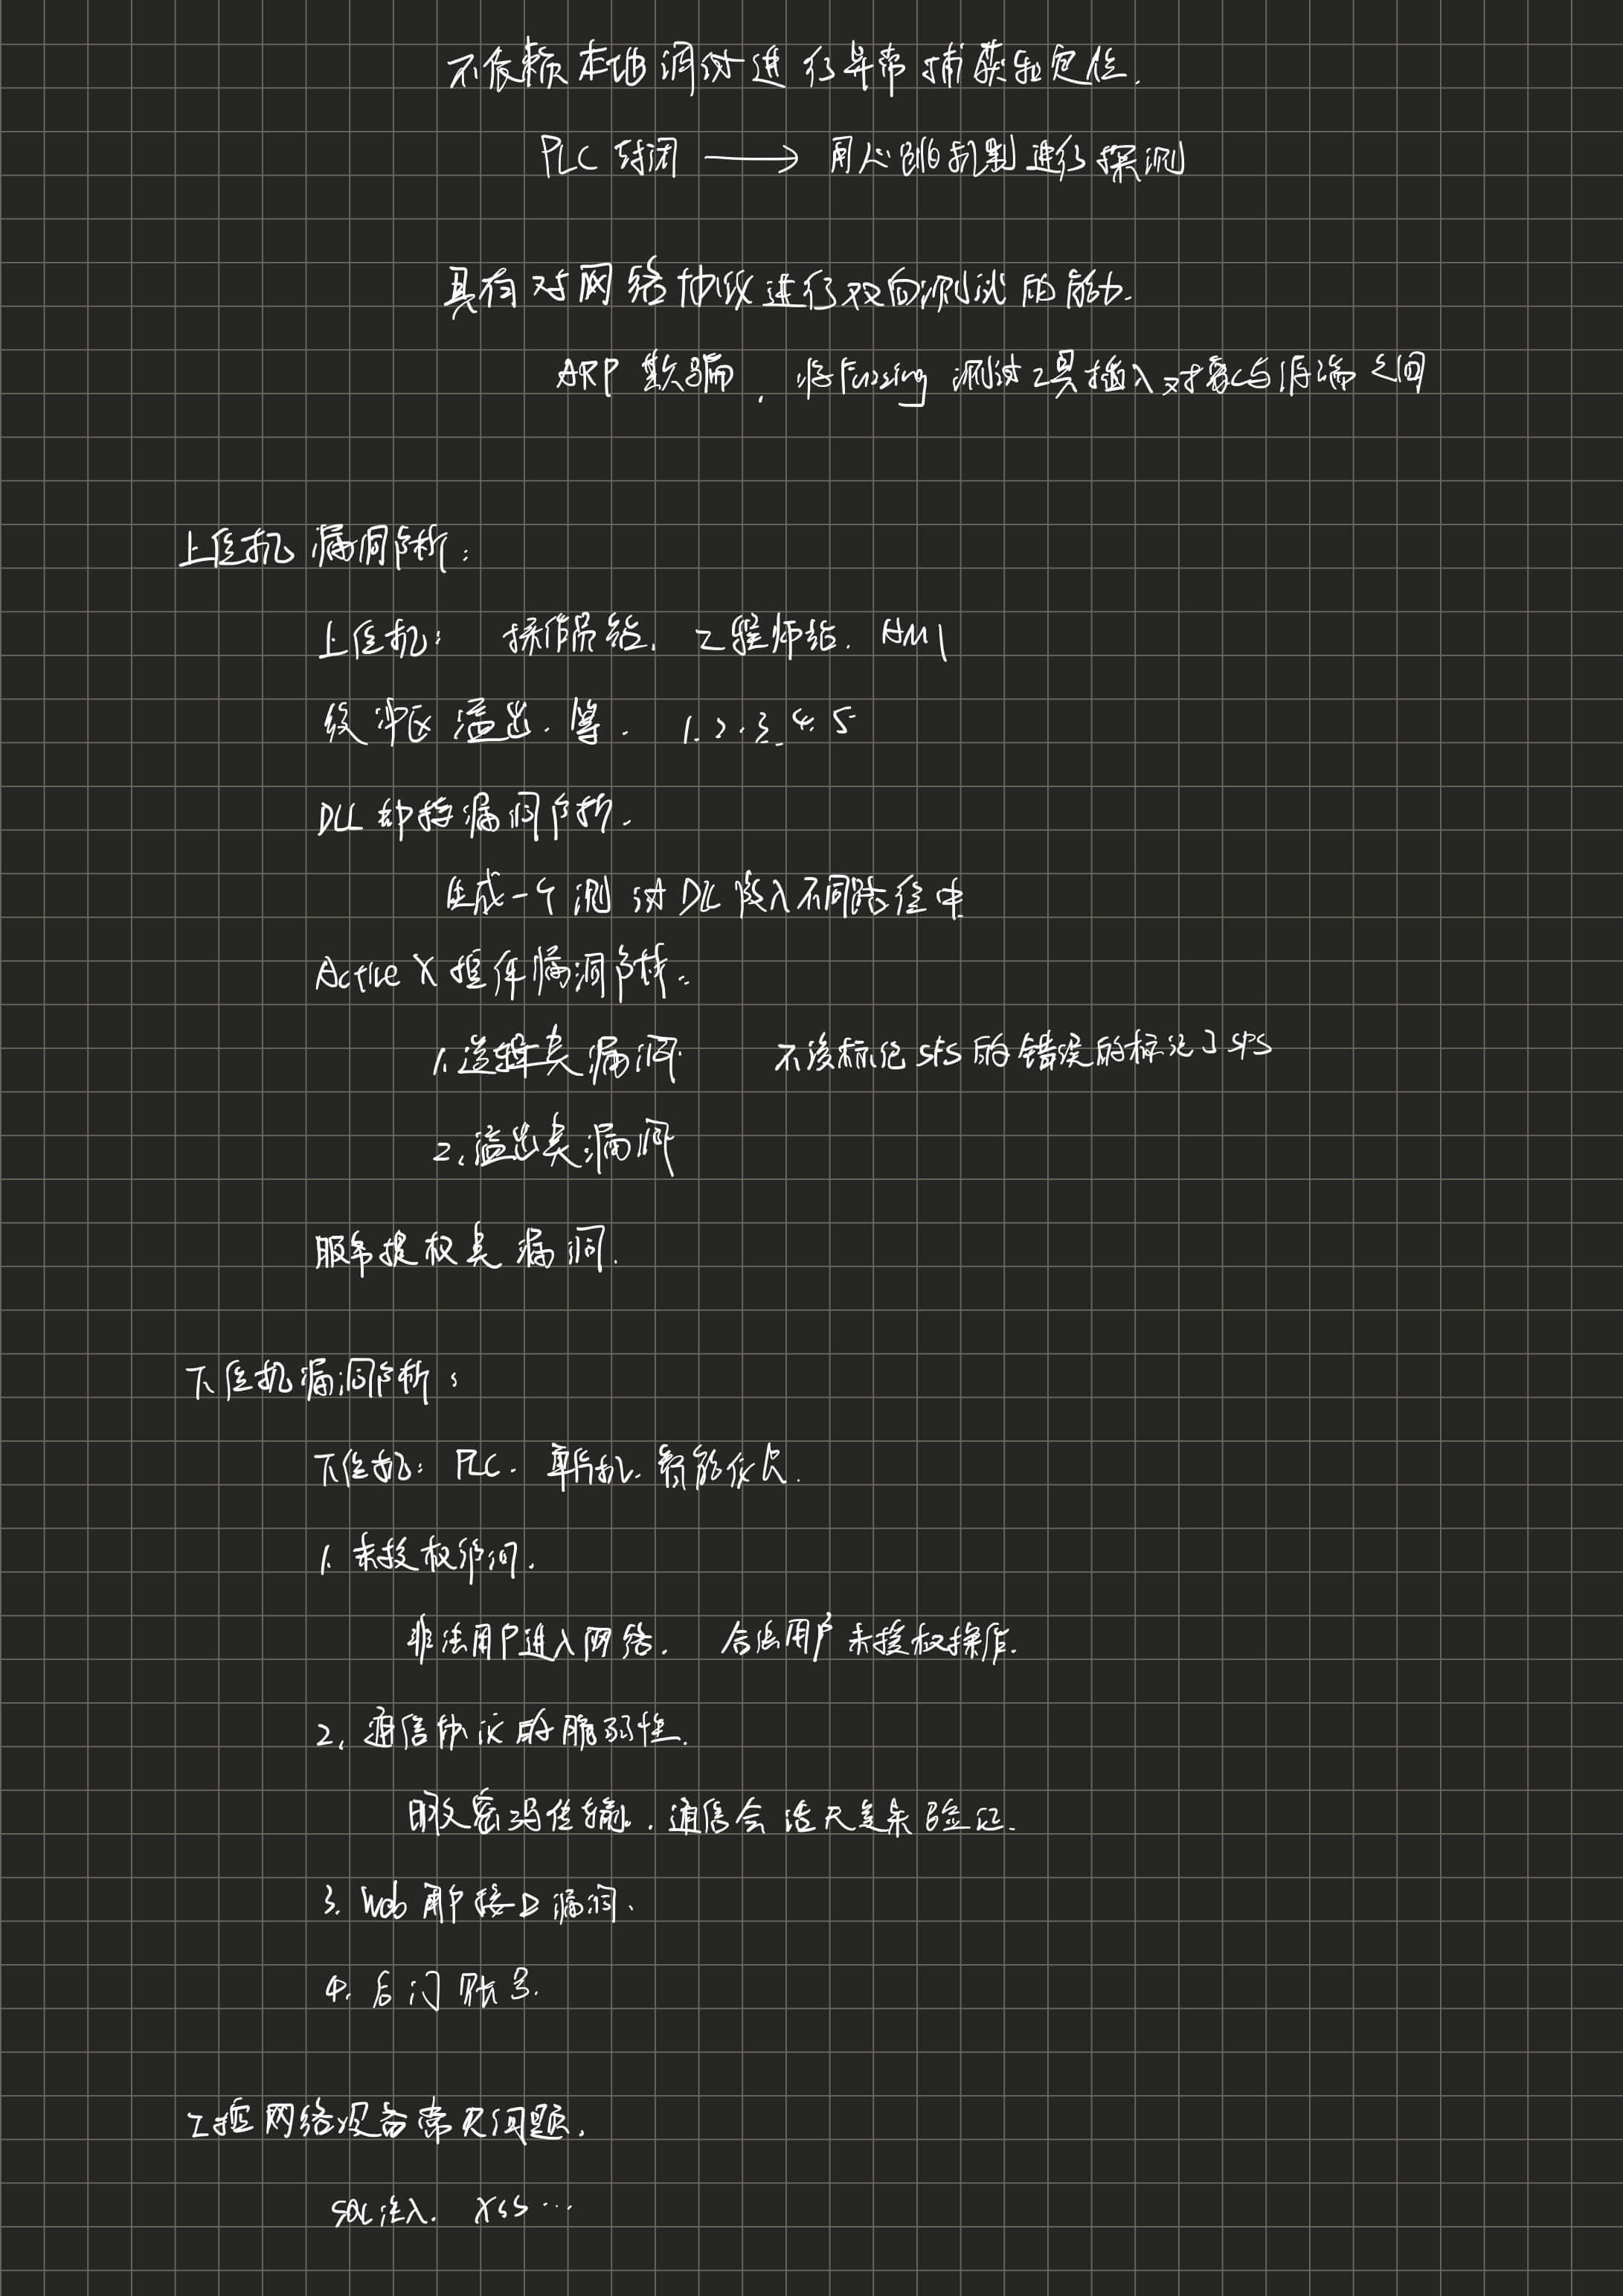 不依赖本地调试进行异常捕获和定位.
PLC 封闭 ⟶ 用心跳机制进行探测
具有对网络协议进行双向测试的能力.
ARP 欺骗, 将Fuzzing 测试工具插入对象与后端之间
上位机漏洞分析:
上位机: 操作员站. 工程师站. HMI
缓冲区溢出. 等. 1. 2. 3. 4. 5
DLL 劫持漏洞分析.
生成一个测试DLL 放入不同路径中
Active X 控件漏洞分析:
1. 逻辑类漏洞 不该标记 SFS 的错误的标记了 SFS
2. 溢出类漏洞
服务提权类漏洞.
下位机漏洞分析:
下位机: PLC. 单片机. 智能仪表.
1. 未授权访问.
非法用户进入网络. 合法用户未授权操作.
2. 通信协议的脆弱性.
明文密码传输. 通信会话无复杂验证.
3. Web 用户接口漏洞.
4. 后门账号.
工控网络设备常见问题.
SQL注入. XSS ...